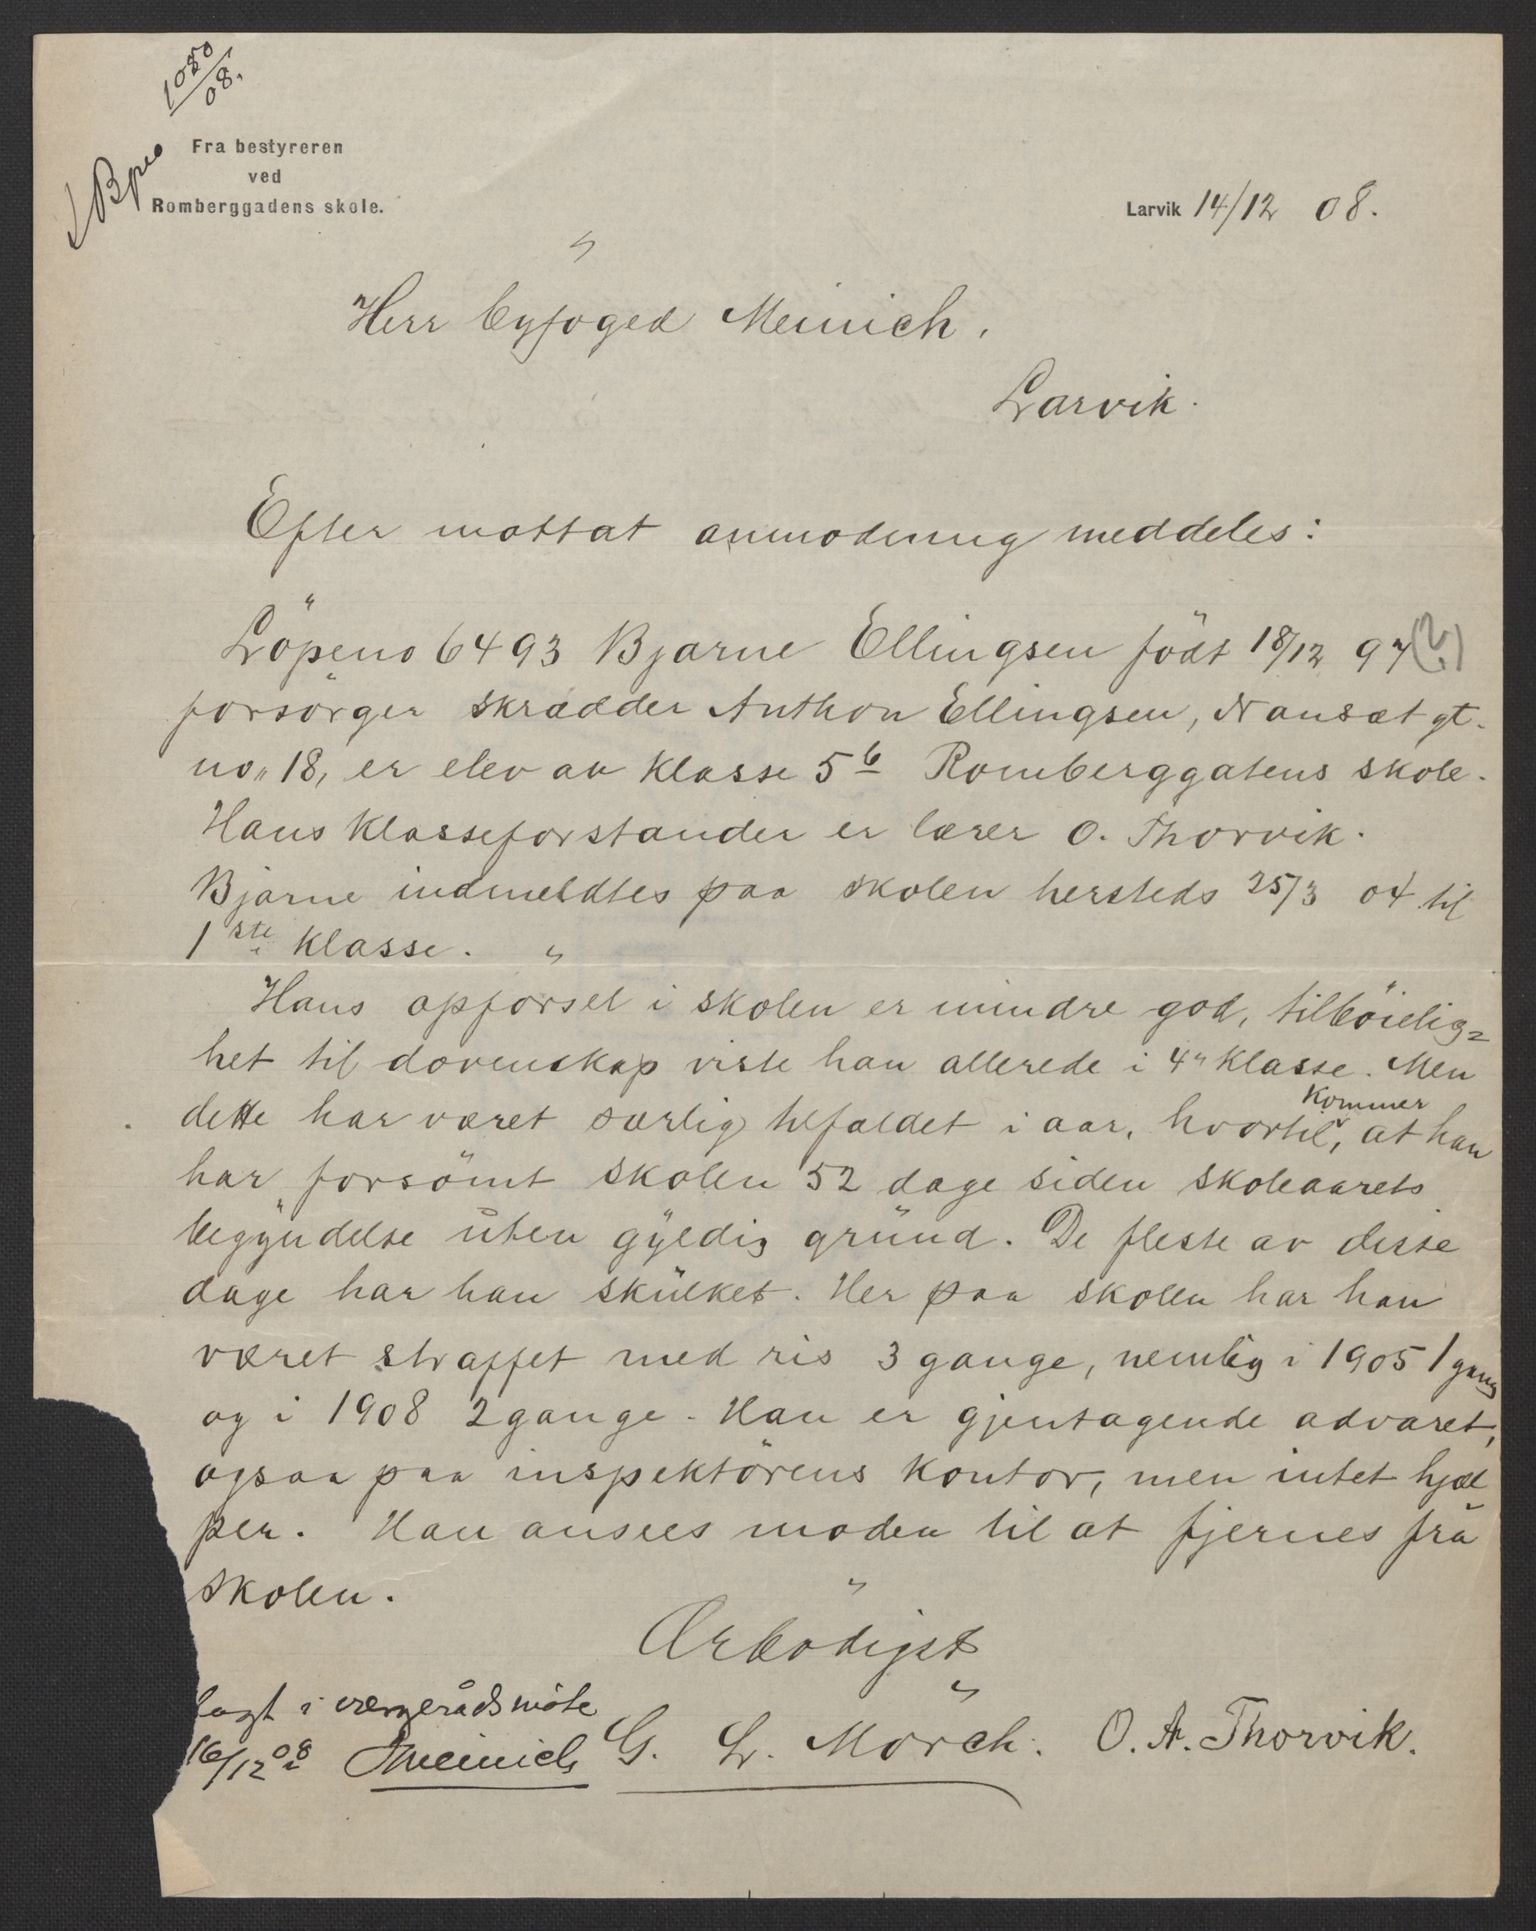 1080/08.
Fra bestyreren
ved
Romberggadens skole.
Larvik 14/12 08.
Herr byfoged Meinich.
Larvik.
Efter mottat anmodning meddeles:
Löpeno 6493 Bjarne Ellingsen födt 18/12 97 (?)
forsörger skrædder Anthon Ellingsen, Nansæt gt.
no 18, er elev av klasse 5b Romberggatens skole.
Hans klasseforstander er lærer O. Thorvik.
Bjarne indmeldtes paa skolen hersteds 25/3 04 til
1ste klasse.
Hans opförsel i skolen er mindre god, tilböielig=
het til dovenskap viste han allerede i 4" klasse. Men
dette har været særlig tilfældet i aar, hvortil kommer, at han
har forsömt skolen 52 dage siden skoleaarets
begyndelse uten gyldig grund. De fleste av disse
dage har han skulket. Her paa skolen har han
været straffet med ris 3 gange, nemlig i 1905 1 gang
og i 1908 2 gange. Han er gjentagende advaret,
ogsaa paa inspektörens kontor, men intet hjæl
per. Han ansees moden til at fjernes fra
skolen.
Ærbödigst
G. L. Mörch. O. A. Thorvik.
lagt i værgerådsmöte
16/12 08 Meinich